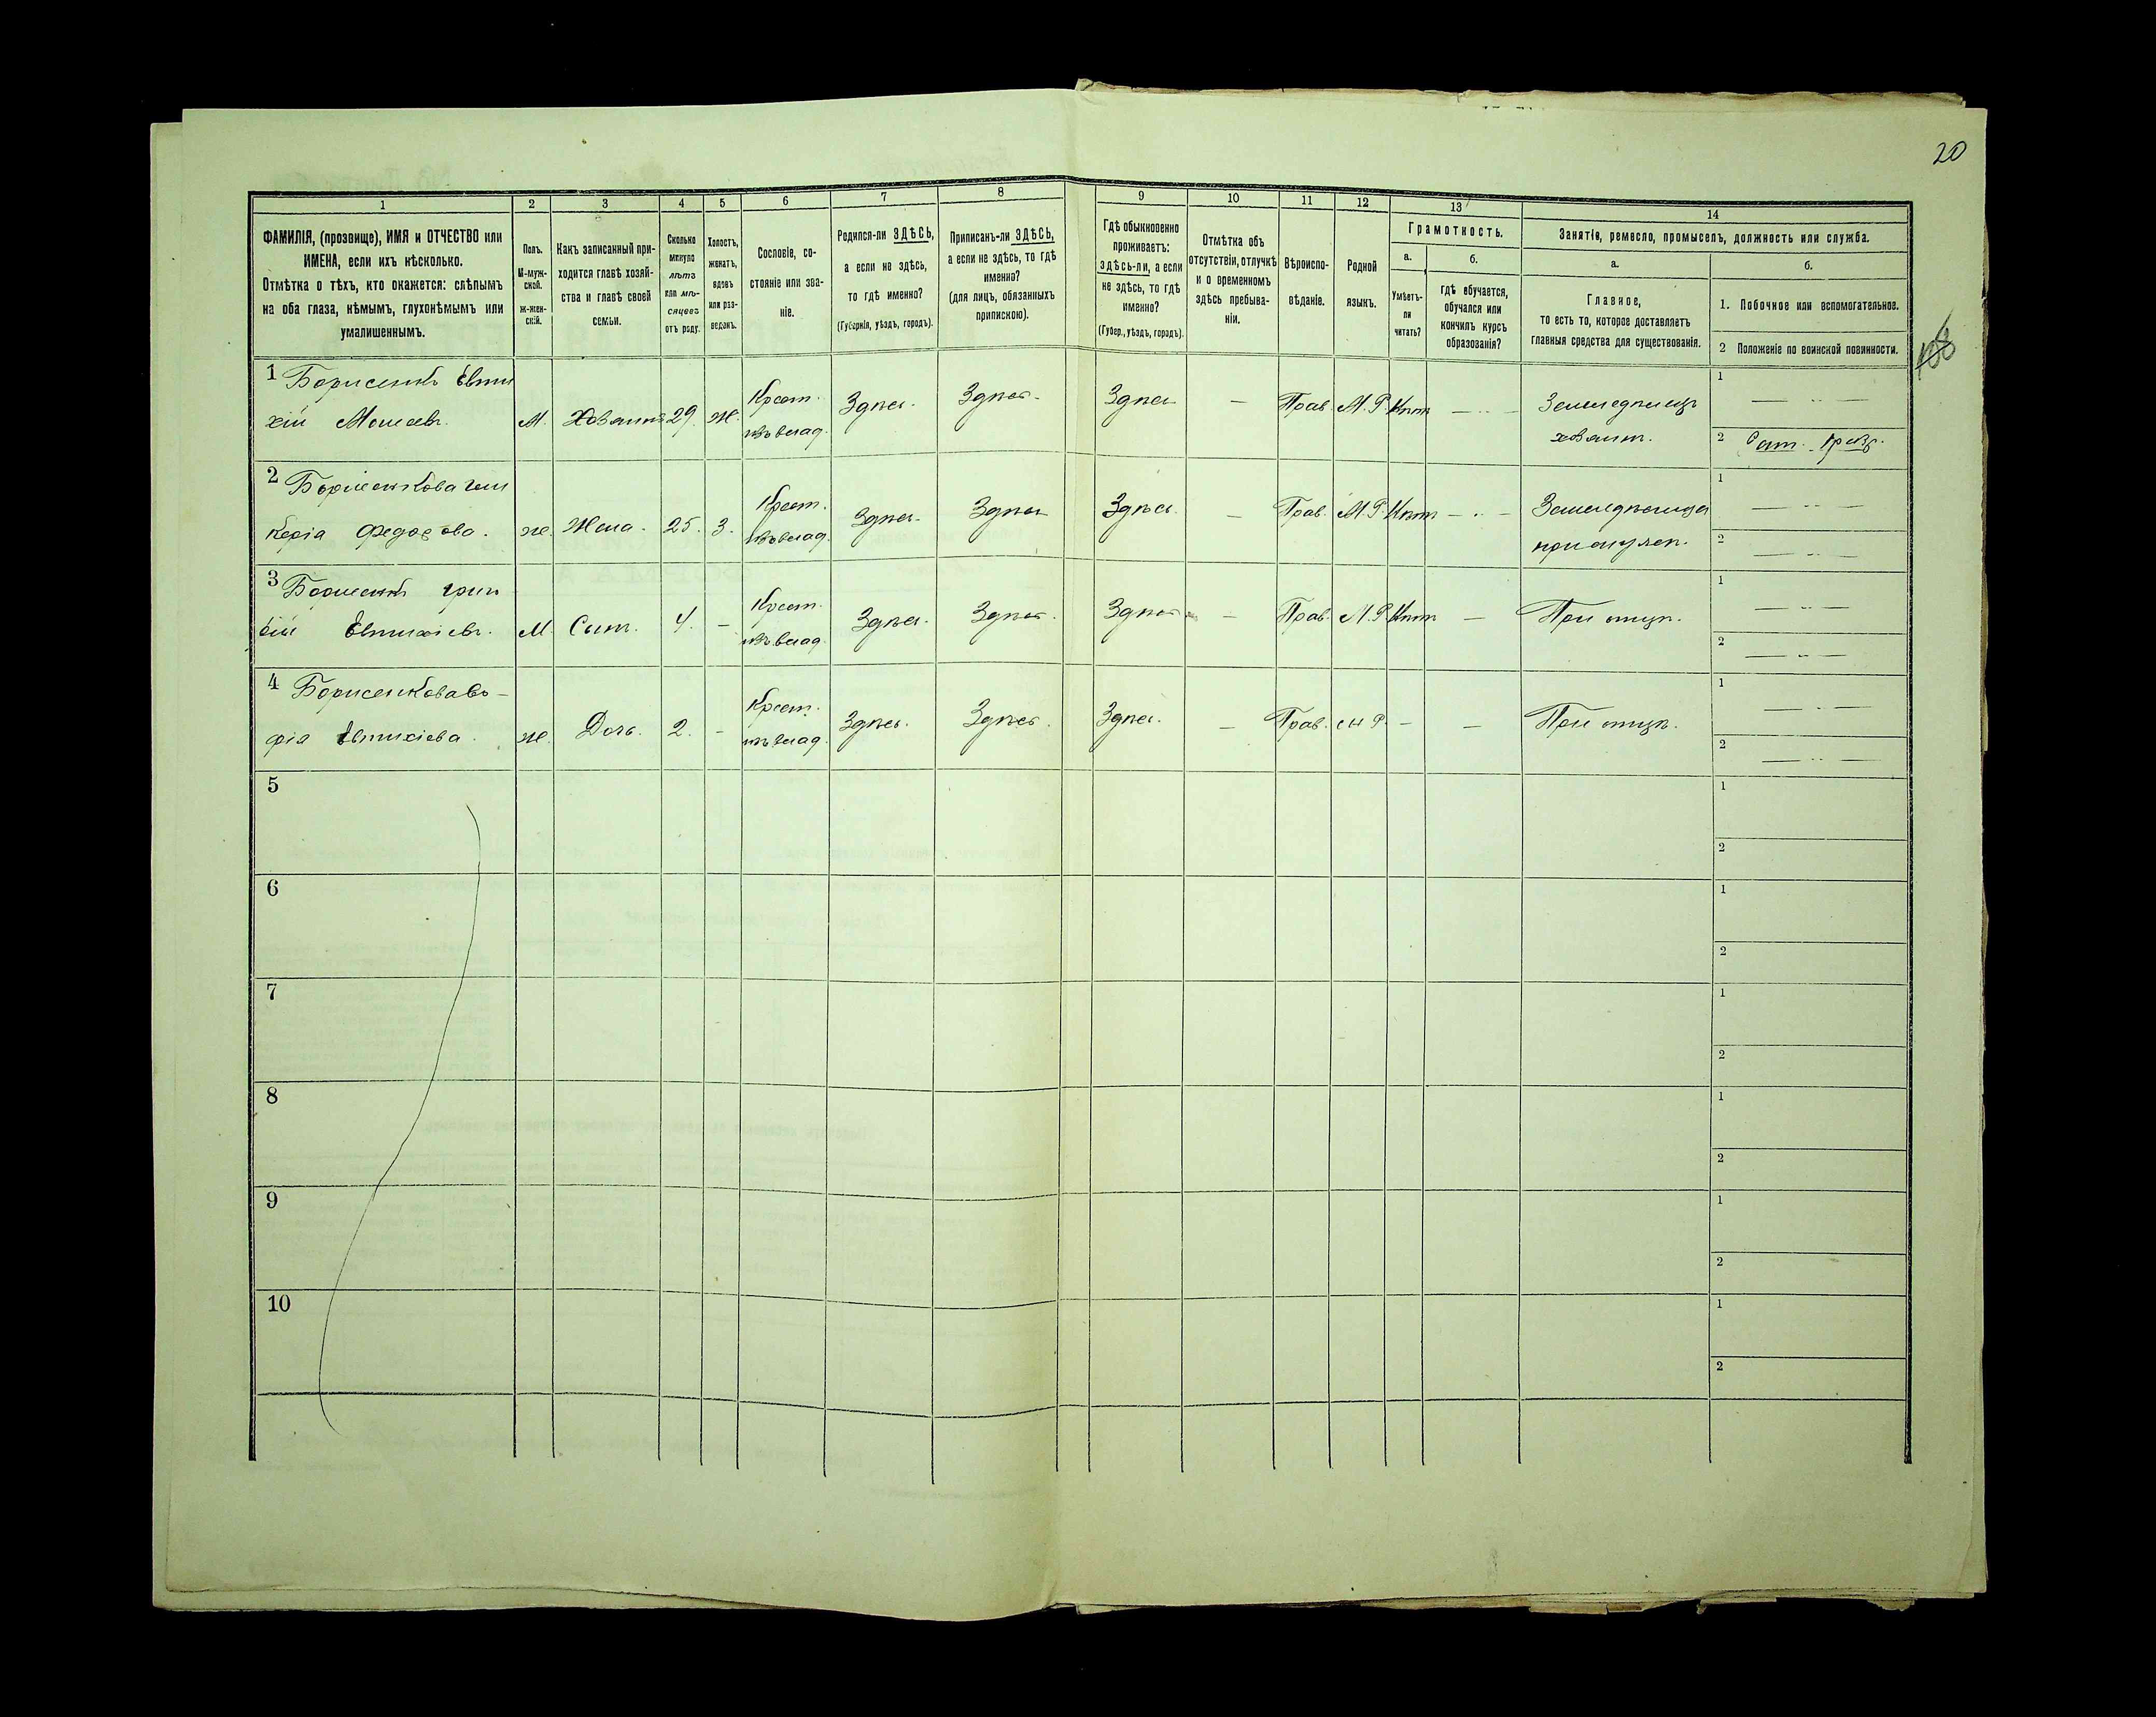 20
1 2 3 4 5 6 7 8 9 10 11 12 13 14
ФАМИЛІЯ, (прозвище), ИМЯ и ОТЧЕСТВО или
ИМЕНА, если ихъ нѣсколько.
Отмѣтка о тѣхъ, кто окажется: слѣпымъ
на оба глаза, нѣмымъ, глухонѣмымъ или
умалишеннымъ.
Полъ.
М-муж-
ской.
ж-жен-
скій.
Какъ записанный при-
ходится главѣ хозяй-
ства и главѣ своей
семьи.
Сколько
минуло
лѣтъ
или мѣ-
сяцевъ
отъ роду.
Холостъ,
женатъ,
вдовъ
или раз-
веденъ.
Сословіе, со-
стояніе или зва-
ніе.
Родился-ли ЗДѢСЬ,
а если не здѣсь,
то гдѣ именно?
(Губернія, уѣздъ, городъ).
Приписанъ-ли ЗДѢСЬ,
а если не здѣсь, то гдѣ
именно?
(для лицъ, обязанныхъ
припискою).
Гдѣ обыкновенно
проживаетъ:
здѣсь-ли, а если
не здѣсь, то гдѣ
именно?
(Губер., уѣздъ, городъ).
Отмѣтка объ
отсутствіи, отлучкѣ
и о временномъ
здѣсь пребыва-
ніи.
Вѣроиспо-
вѣданіе.
Родной
языкъ.
Грамотность.
а.
Умѣетъ-
ли
читать?
б.
гдѣ обучается,
обучался или
кончилъ курсъ
образованія?
Занятіе, ремесло, промыселъ, должность или служба.
а.
Главное,
то есть то, которое доставляетъ
главныя средства для существованія.
б.
1. Побочное или вспомогательное.
2 Положеніе по воинской повинности.
1 Борисенко Евти
хій Моисеев. М. Хозяинъ 29. Ж. Крест. изъ влад. Здѣсь. Здѣсь. Здѣсь — Прав. М.Р. Нѣт — Земледѣлецъ
хозяин. 1 — 2
2 Борисенкова
керія Федорова. ж. Жена. 25. З. Крест. изъ влад. Здѣсь. Здѣсь Здѣсь. — Прав. М.Р. Нѣт — Земледѣлица
при 1 — 2 —
3 Борисенко
Евтихіев. М. Сынъ. 4. – Крест. изъ влад. Здѣсь. Здѣсь. Здѣсь — Прав. М.Р. Нѣт — При отцѣ. 1 — 2 —
4 Борисенкова Со-
фія Евтихіева. ж. Дочь. 2. – Крест. изъ влад. Здѣсь. Здѣсь. Здѣсь. — Прав. М Р. – — При отцѣ. 1 — 2 —
5 1 2
6 1 2
7 1 2
8 1 2
9 1 2
10 1 2